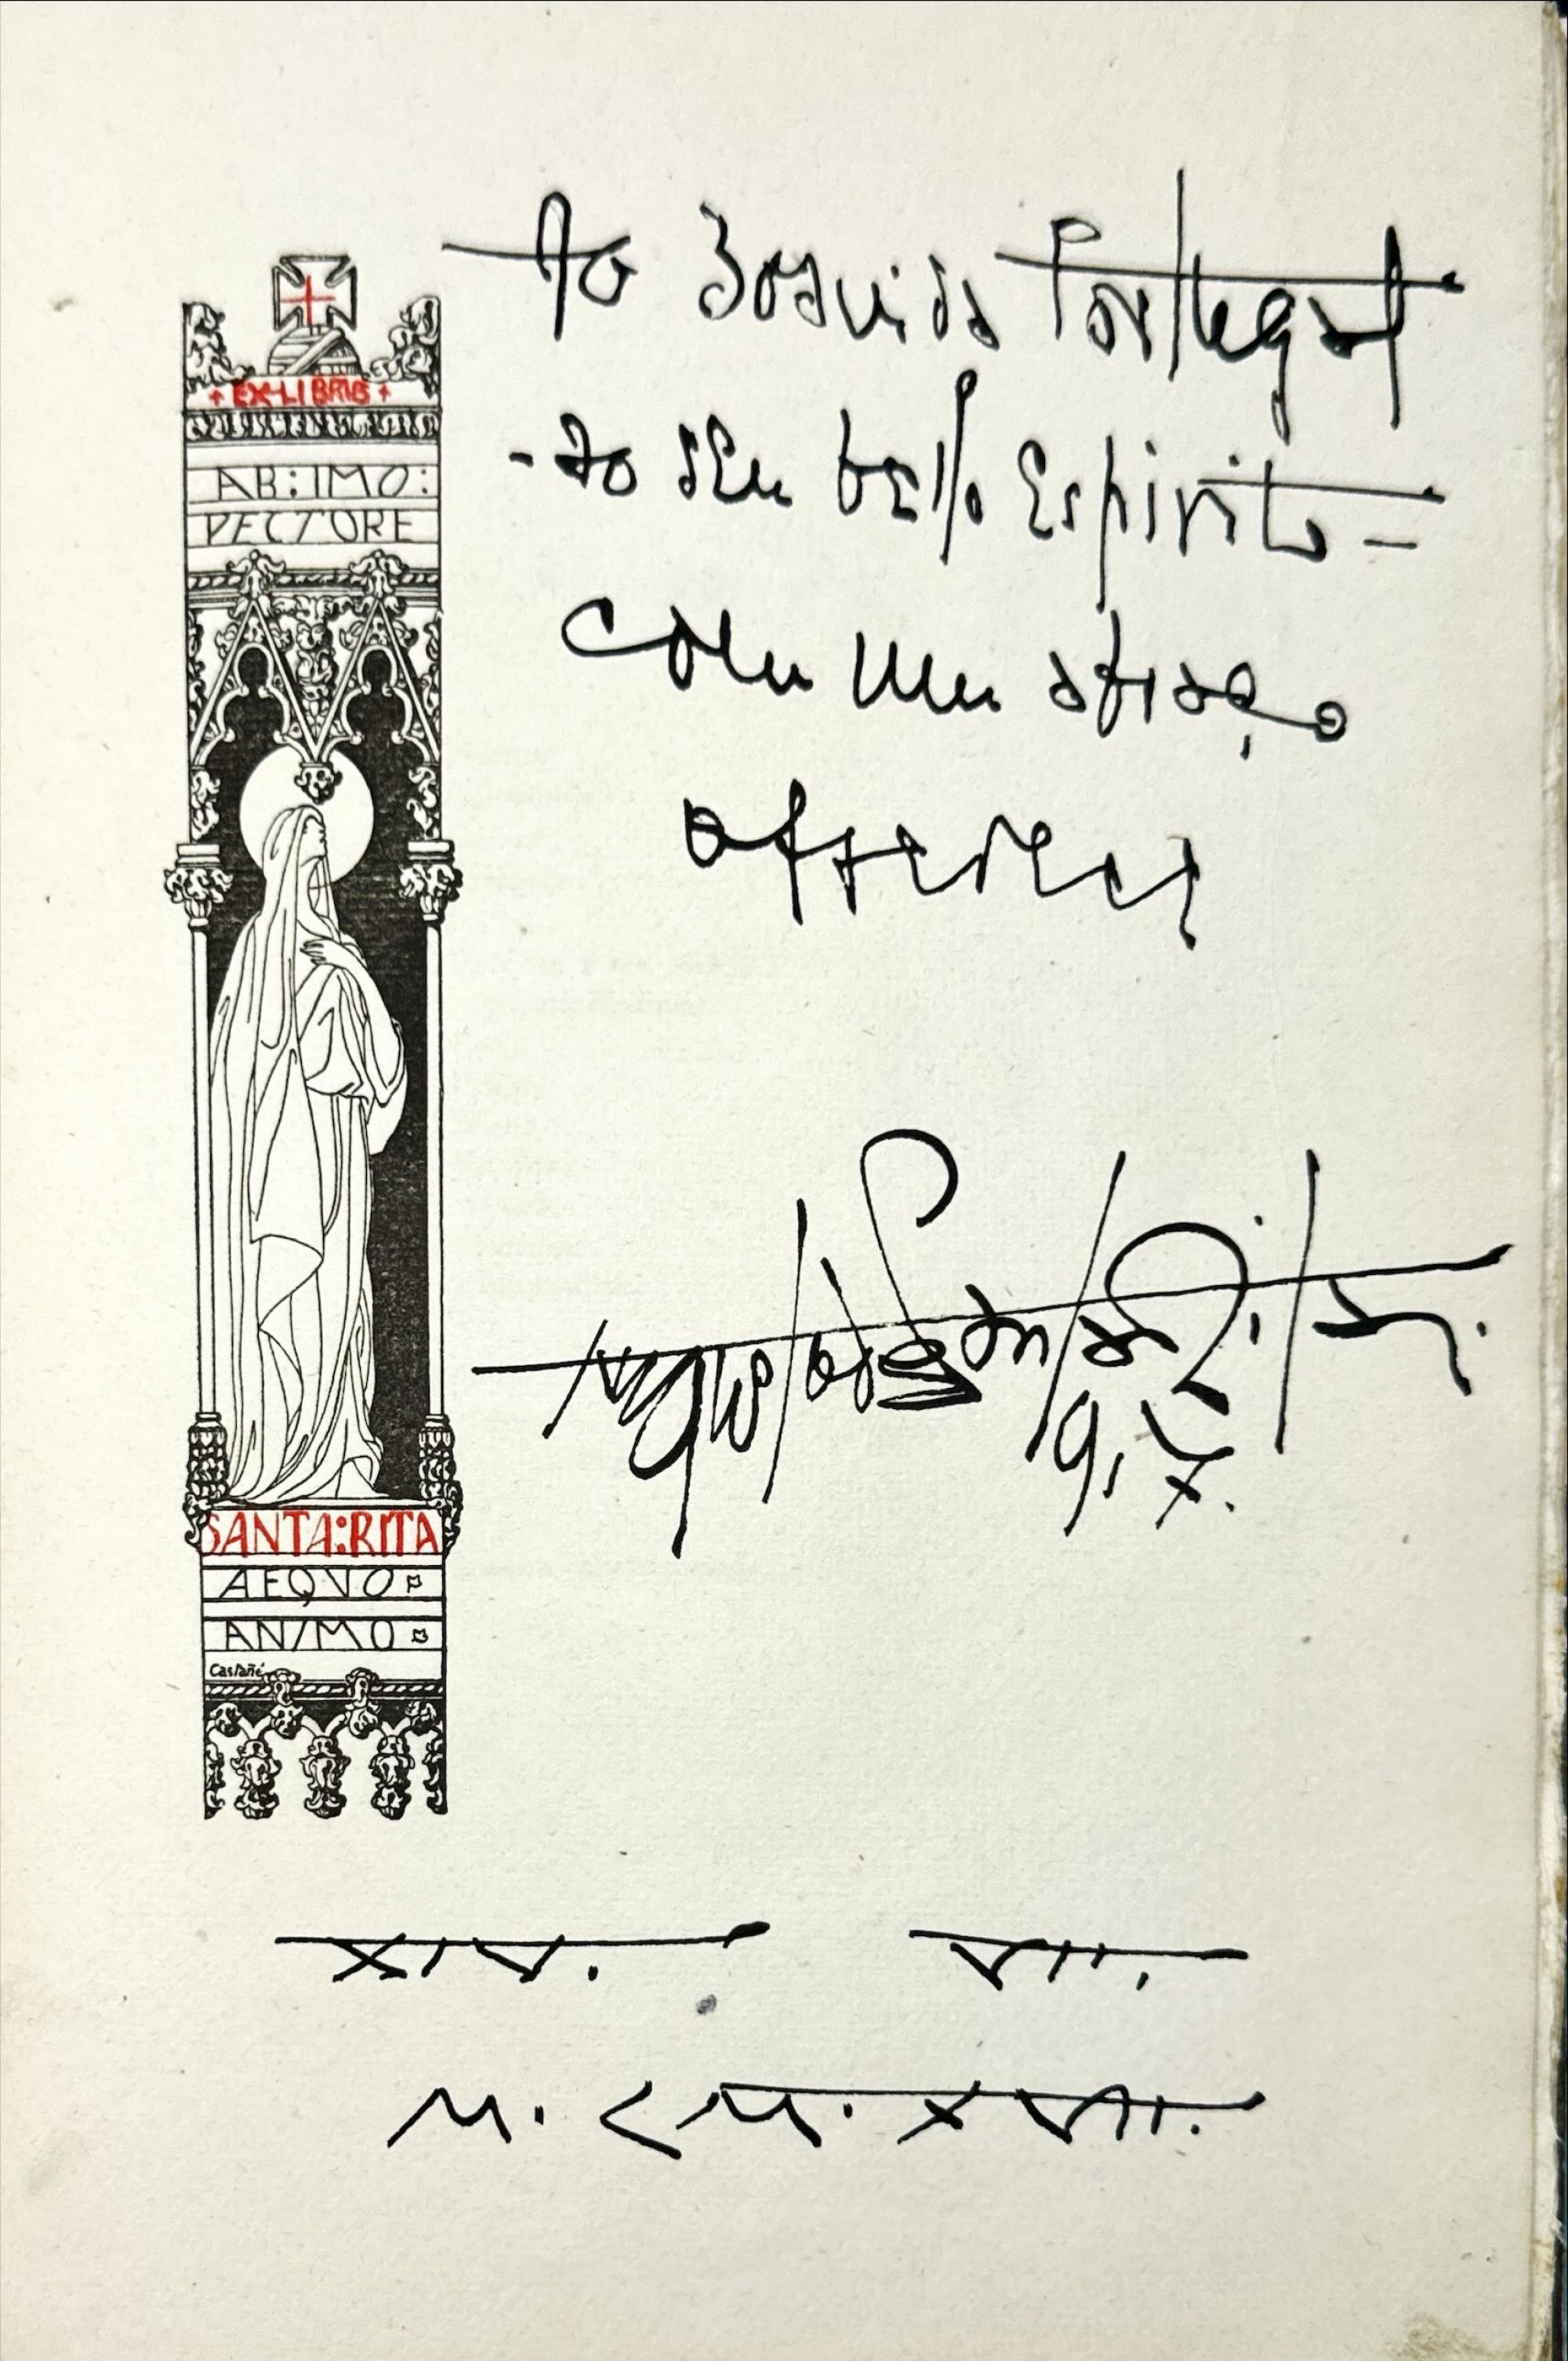 + EX-LIBRIS +
AB : IMO :
PECTORE
SANTA : RITA
AEQVO
ANIMO
Castañé
Ao Boavida Portugal
- ao seu bello Espirito -
com um abraço
offerece
Augusto de Santa Rita.
917.
XIV. VII.
M. CM. XVII.